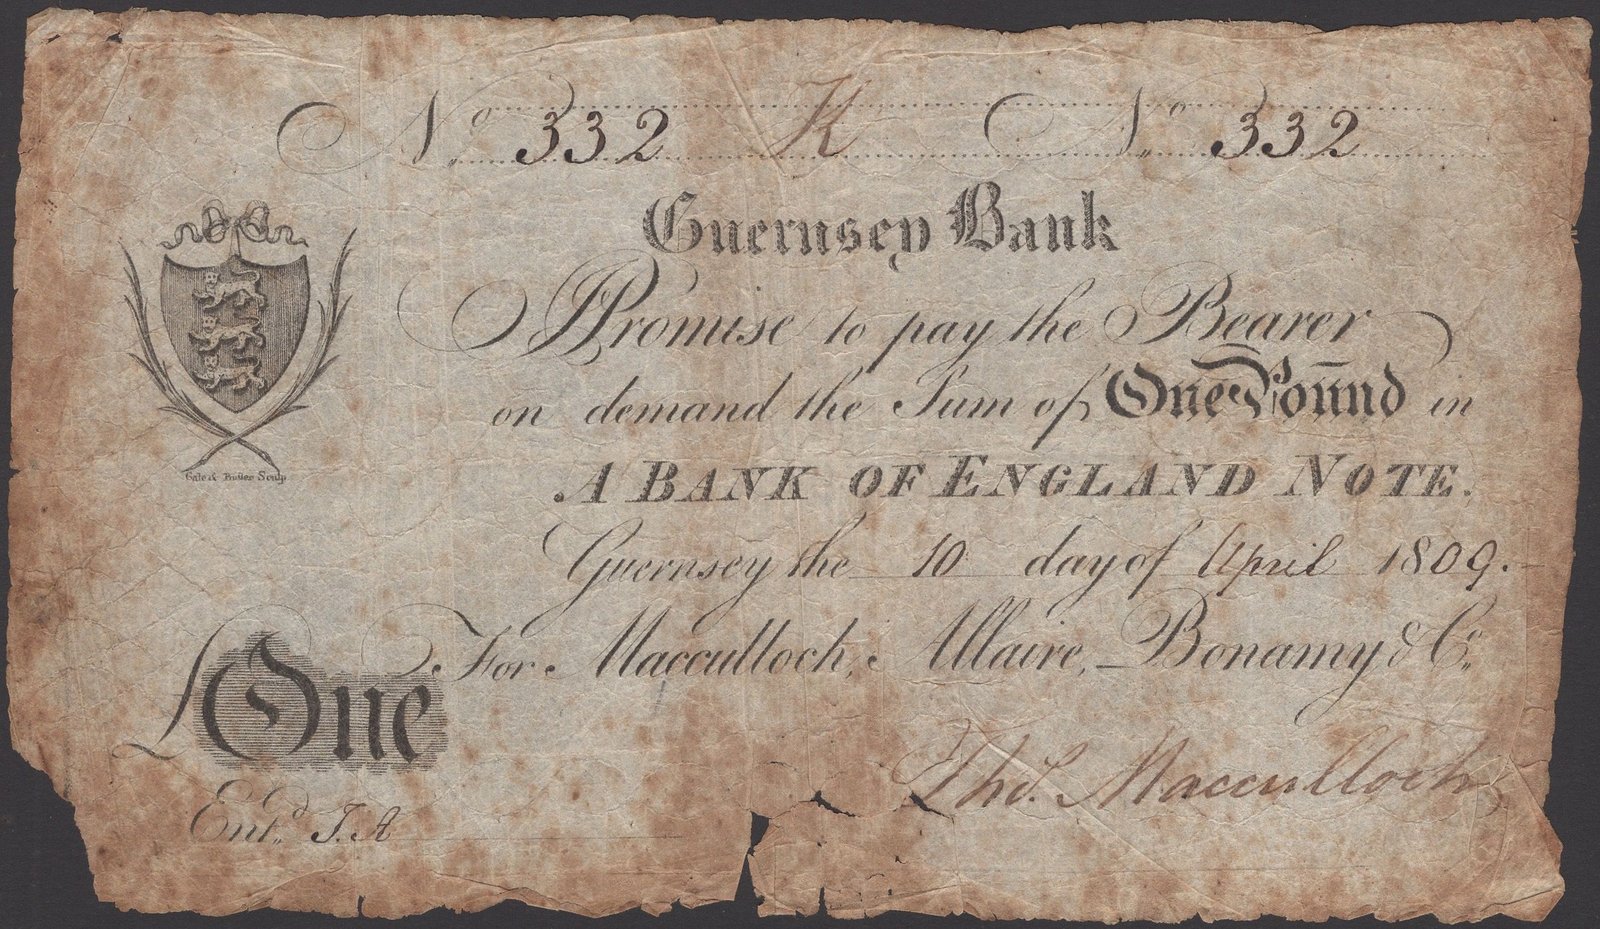 No. 332 K No. 332
Guernsey Bank
I Promise to pay the Bearer
on demand the Sum of One Pound in
A BANK OF ENGLAND NOTE.
Guernsey the 10 day of April 1809.
For Macculloch, Allaire, Bonamy & Co.
£One
Thos. Macculloch
Entd. J.A
Sculp